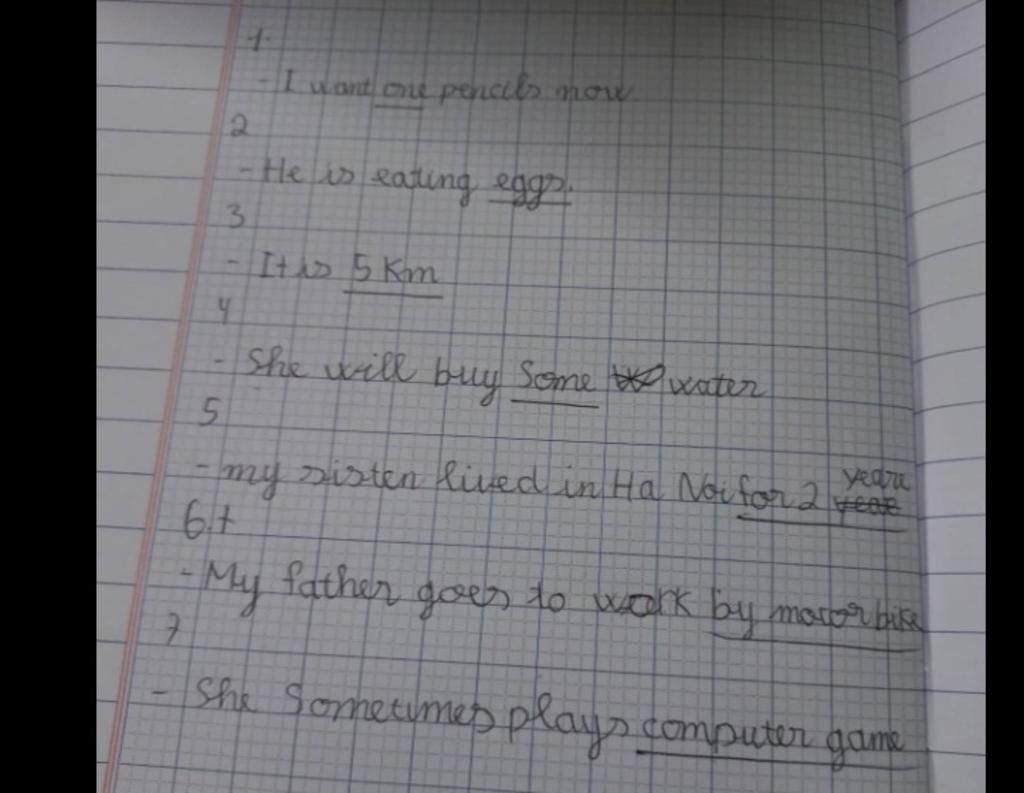 1.
- I want one pencils now
2
- He is eating eggs.
3
- It is 5 Km
4
- She will buy some water
5
- my sister lived in Ha Noi for 2 years
6.
- My father goes to work by motorbike
7
- She sometimes plays computer game